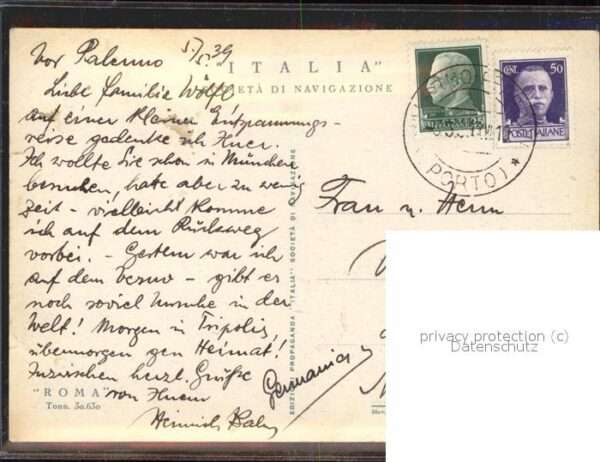 Vor Palermo 5/5.39
Liebe Familie Wölfl
auf einer kleinen Entspannungs-
reise gedenke ich Ihrer.
Ich wollte Sie schon in München
besuchen, habe aber zu wenig
Zeit - vielleicht komme
ich auf dem Rückweg
vorbei. - Gestern war ich
auf dem Vesuv - gibt es
noch soviel Unruhe in der
Welt! Morgen in Tripolis,
übermorgen gen Heimat!
Inzwischen herzl. Grüße
von Ihrem
Heinrich
"ITALIA"
SOCIETÀ DI NAVIGAZIONE
"ROMA"
Tonn. 30.630
EDIZIONI PROPAGANDA "ITALIA" SOCIETÀ DI NAVIGAZIONE
CENT. 50
POSTE ITALIANE
PORTO)
Frau u. Herrn
Germania
privacy protection (c)
Datenschutz